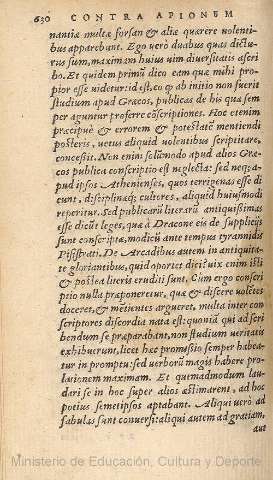 630 CONTRA APIONEM
nantiæ multæ forsan & aliæ quærere nolenti-
bus apparebant. Ego verò duabus quas dictu-
rus sum, maximam huius vim diuersitatis ascri
bo. Et quidem primũ dico eam quæ mihi pro-
pior esse videtur: id est, eo q ab initio non fuerit
studium apud Græcos, publicas de his quæ sem
per aguntur proferre cõscriptiones. Hoc etenim
præcipuè & errorem & potestatẽ mentiendi
posteris, vetus aliquid volentibus scriptitare,
concessit. Non enim solũmodo apud alios Græ-
cos publica conscriptio est neglecta: sed neq; a-
pud ipsos Athenienses, quos terrigenas esse di
cunt, disciplinæq; cultores, aliquid huiusmodi
reperitur. Sed publicarũ literarũ antiquissimas
esse dicũt leges, quæ à Dracone eis de suppliciis
sunt conscriptæ, modicũ ante tempus tyrannidis
Pisistrati. De Arcadibus autem in antiquita-
te gloriantibus, quid oportet dici? vix enim isti
& postea literis eruditi sunt. Cùm ergo conscri
ptio nulla præponeretur, quæ & discere volẽtes
doceret, & mẽtientes argueret, multa inter con
scriptores discordia nata est: quoniã qui ad scri
bendum se præparabant, non studium veritatis
exhibuerunt, licet hæc promissio semper habea-
tur in promptu: sed verborũ magis habere pro-
lationem maximam. Et quemadmodum lau-
dari se in hoc super alios æstimarent, ad hoc
potius semetipsos aptabant. Aliqui verò ad
fabulas sunt conuersi: aliqui autem ad gratiam,
aut
Ministerio de Educación, Cultura y Deporte